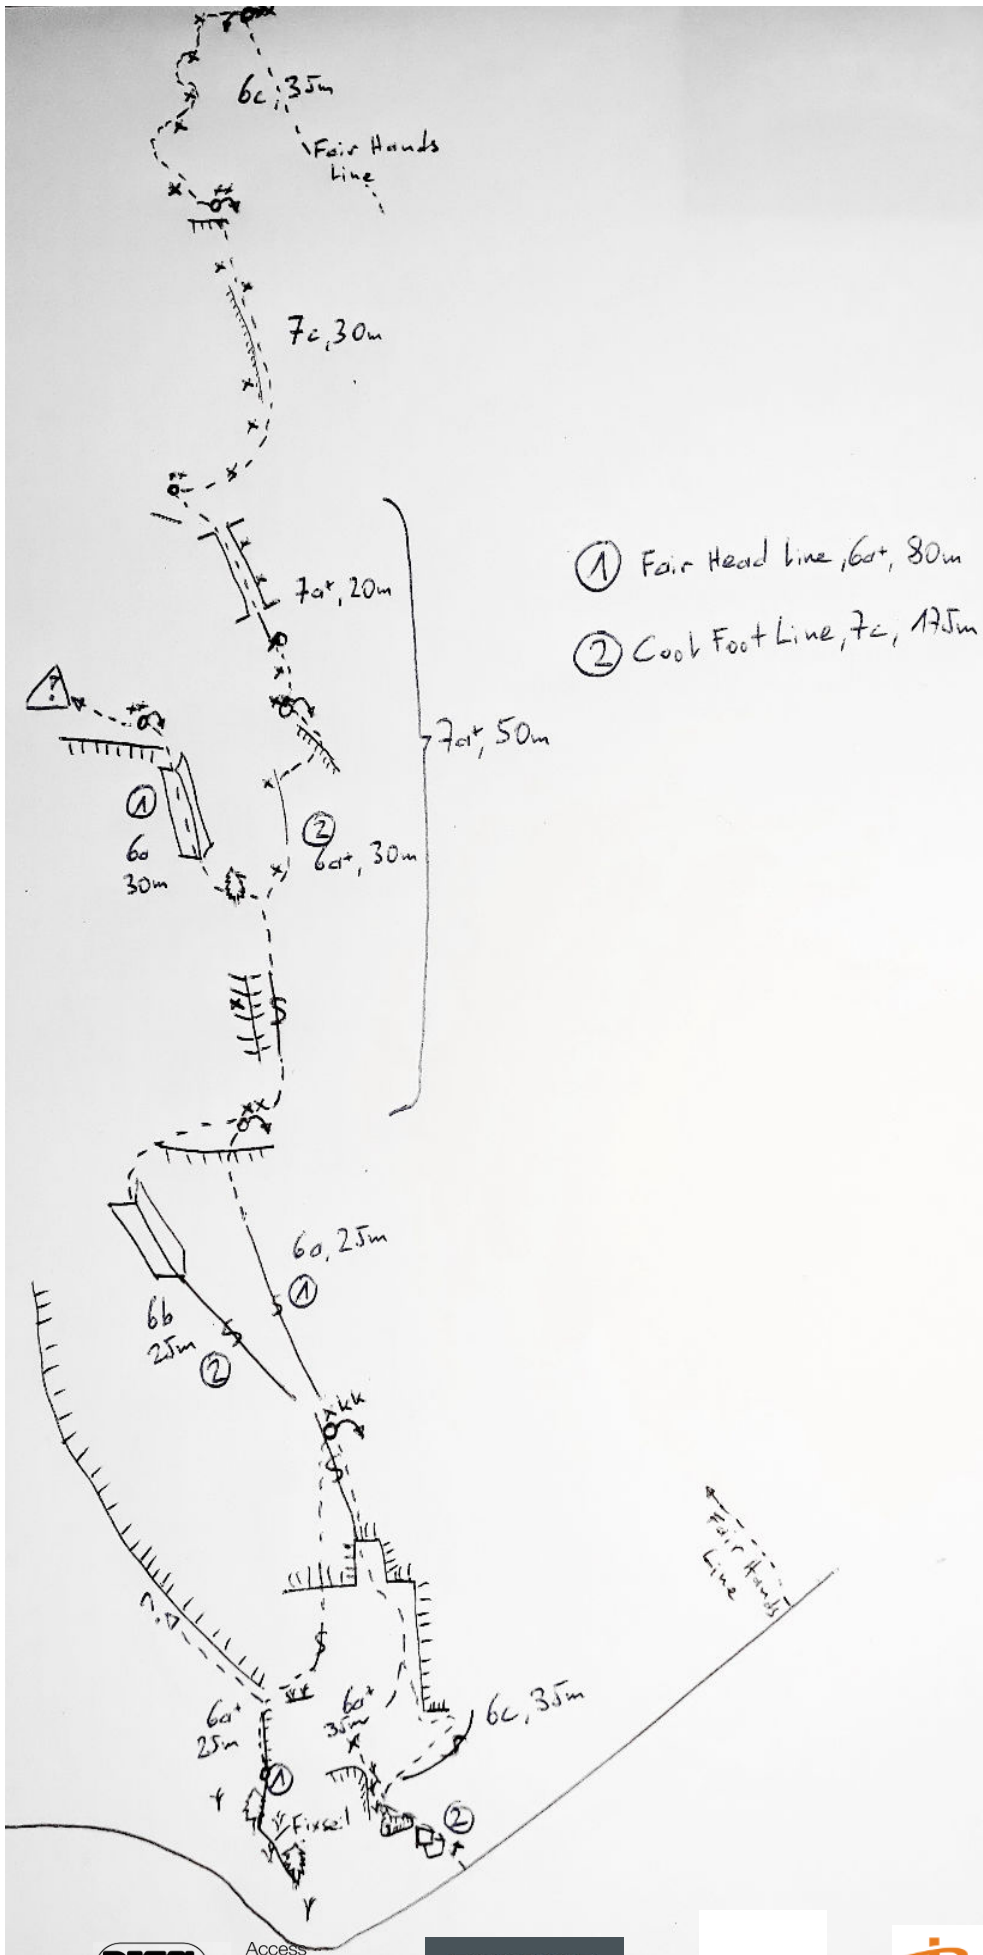 6c, 35m
Fair Hands
Line
7c, 30m
7a+, 20m
① Fair Head Line, 6a+, 80m
② Cool Foot Line, 7c, 175m
?
7a+, 50m
①
6a
30m
②
6a+, 30m
6a, 25m
①
6b
25m
②
Fair Hands
Line
?
6a+
25m
6a+
35m
6c, 35m
①
Fixseil
②
Access